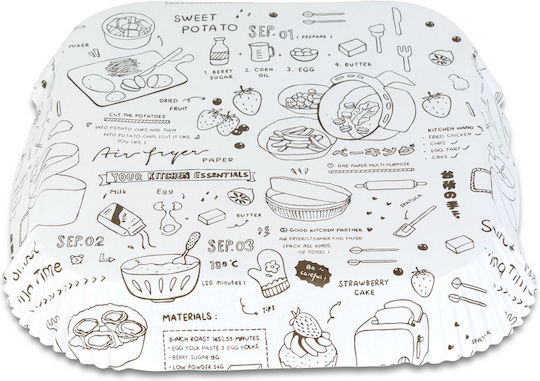 SWEET
POTATO
SEP.01 (PREPARE)
MIXER
1. BERRY
SUGAR
2. CORN
OIL
3. EGG
4. BUTTER
DRIED
FRUIT
CUT THE POTATOES
INTO POTATO CHIPS AND THEN
INTO POTATO CHIPS (CUT IF LIKE
YOU LIKE)
Air fryer
PAPER
ベーキング
① ONE PAPER MULTI-PURPOSE
KITCHEN HAND
FRIED CHICKEN ✓
CHIPS ✓
EGG TART ✓
CAKE ✓
YOUR KITCHEN ESSENTIALS
Milk
Egg
BUTTER
SPATULA
② GOOD KITCHEN PARTNER
AIR FRYER/STEAMER PAD PAPER
(PACK ALL KINDS
OF FOOD)
SEP.02
SEP.03
180°C
(20 minutes)
Be
careful!
TIPS
STRAWBERRY
CAKE
MATERIALS:
EGG YOLK PASTE 3 EGG YOLKS
BERRY SUGAR 18G
LOW POWDER 56G
Sweet
SPATULA